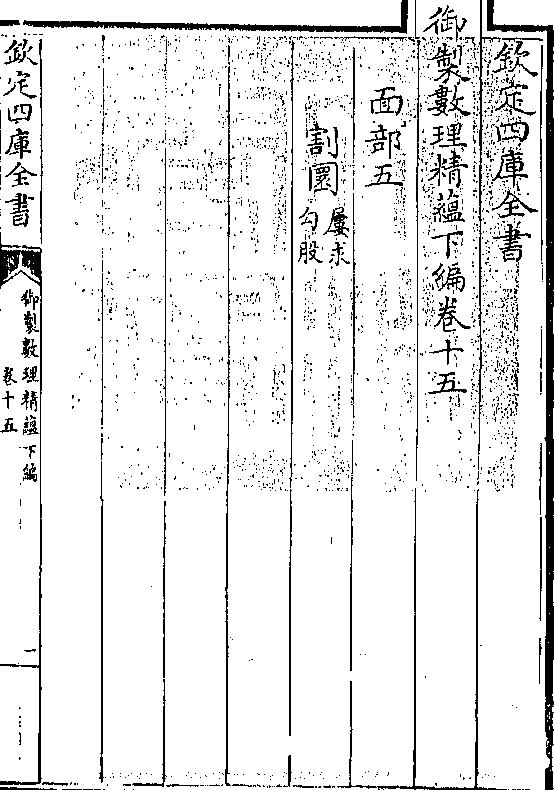 欽定四庫全書
御製數理精蘊下編卷十五
面部五
割圜屢求勾股
欽定四庫全書
御製數理精蘊下編
卷十五
一